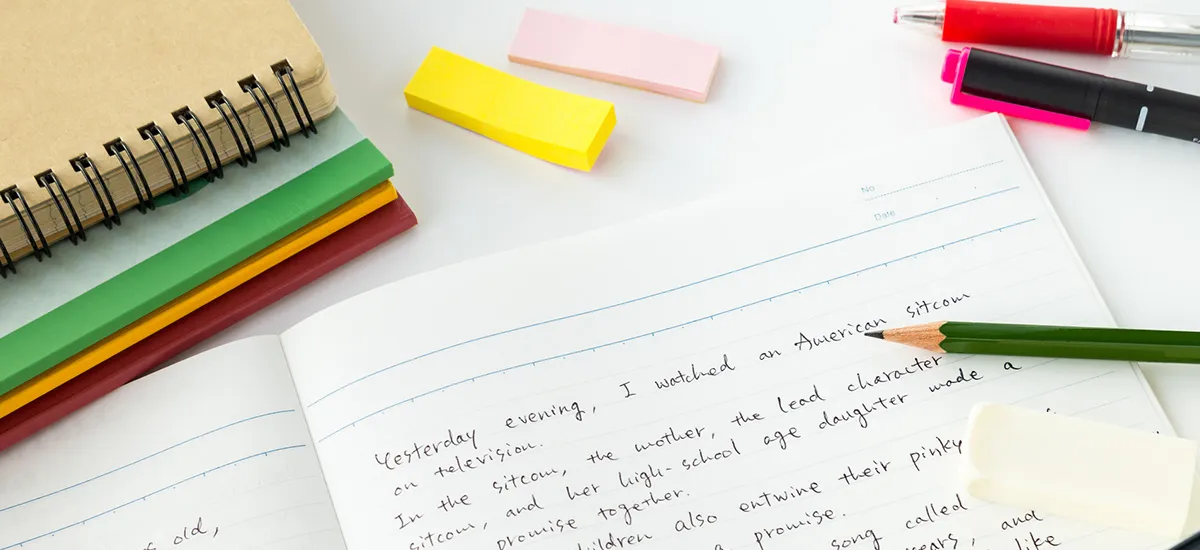 No
Date
Yesterday evening, I watched an American sitcom
on television.
In the sitcom, the mother, the lead character
sitcom, and her high-school age daughter made a
promise together.
also entwine their pinky
a promise.
song called
and
like
s old,